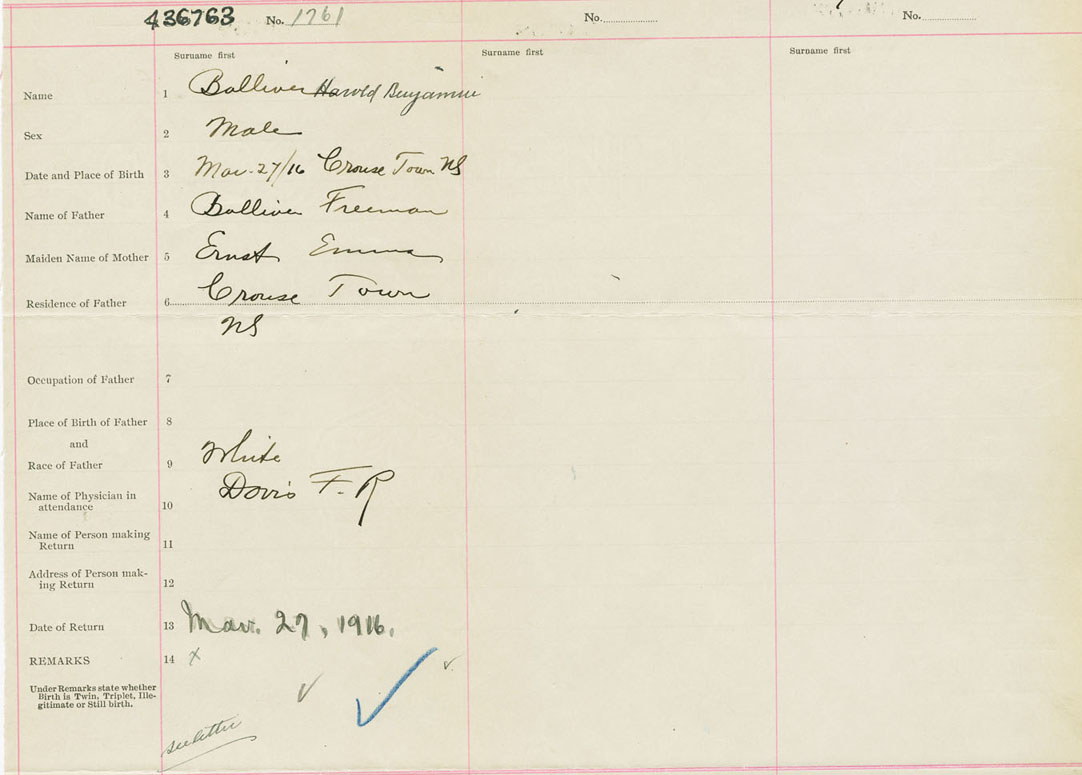 436763 No. 1761 No. No.
Surname first Surname first Surname first
Name 1 Bolliver Harold Benjamin
Sex 2 Male
Date and Place of Birth 3 Mar. 27/16 Crouse Town NS
Name of Father 4 Bolliver Freeman
Maiden Name of Mother 5 Ernst Emma
Residence of Father 6 Crouse Town
NS
Occupation of Father 7
Place of Birth of Father 8
and
Race of Father 9 White
Name of Physician in
attendance 10 Davis F. R
Name of Person making
Return 11
Address of Person mak-
ing Return 12
Date of Return 13 Mar. 27, 1916.
REMARKS 14 x
Under Remarks state whether
Birth is Twin, Triplet, Ille-
gitimate or Still birth.
see letter